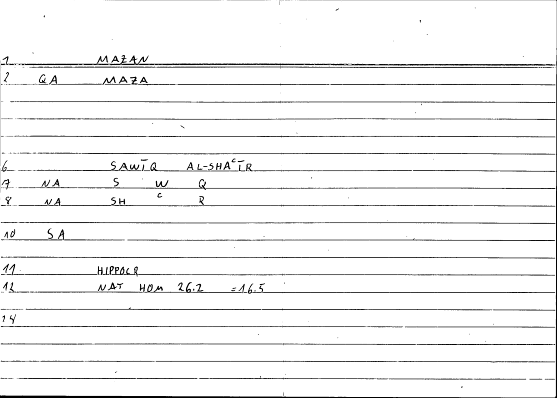 1 MAZAN
2 QA MAZA
6 SAWĪQ AL-SHAʿĪR
7 NA S W Q
8 NA SH ʿ R
10 SA
11 HIPPOCR
12 NAT HOM 26.2 =16.5
14